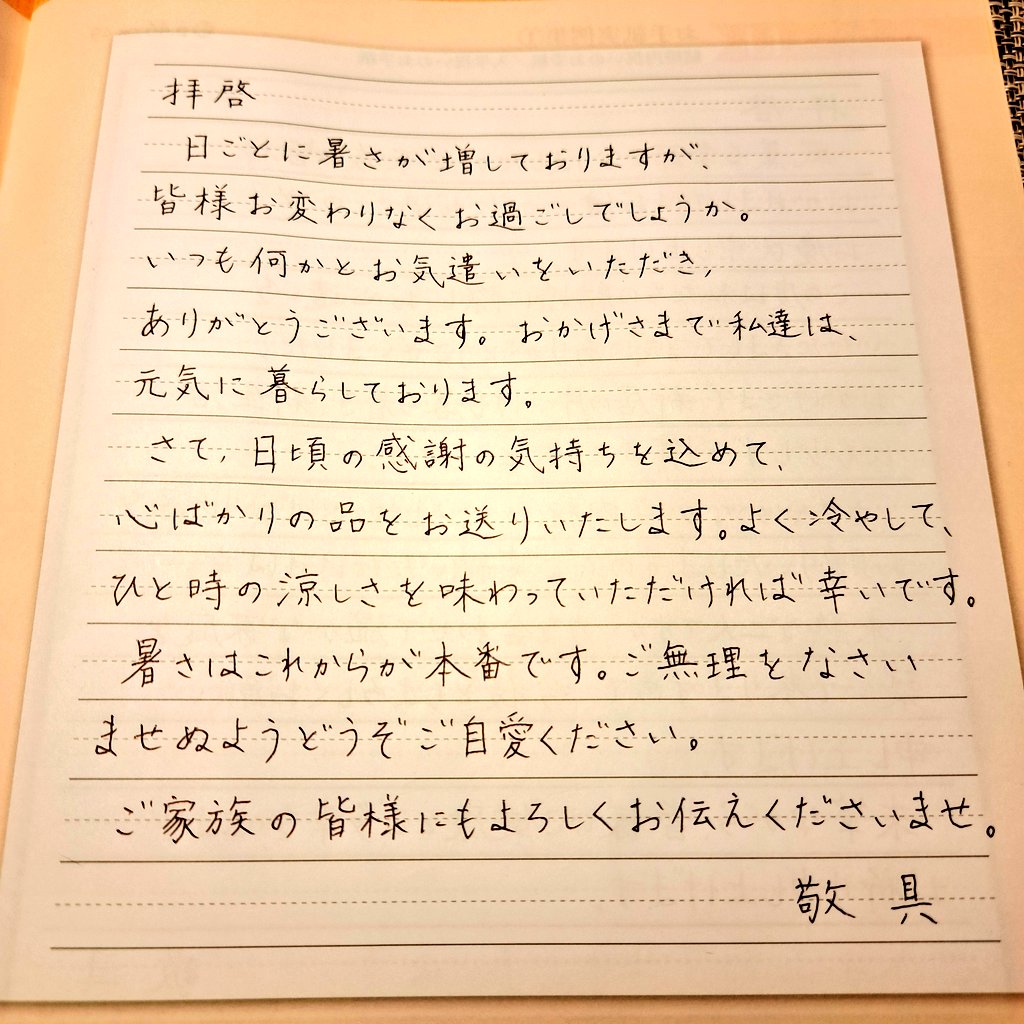 拝啓
日ごとに暑さが増しておりますが、
皆様お変わりなくお過ごしでしょうか。
いつも何かとお気遣いをいただき、
ありがとうございます。おかげさまで私達は、
元気に暮らしております。
さて、日頃の感謝の気持ちを込めて、
心ばかりの品をお送りいたします。よく冷やして、
ひと時の涼しさを味わっていただければ幸いです。
暑さはこれからが本番です。ご無理をなさい
ませぬようどうぞご自愛ください。
ご家族の皆様にもよろしくお伝えくださいませ。
敬具